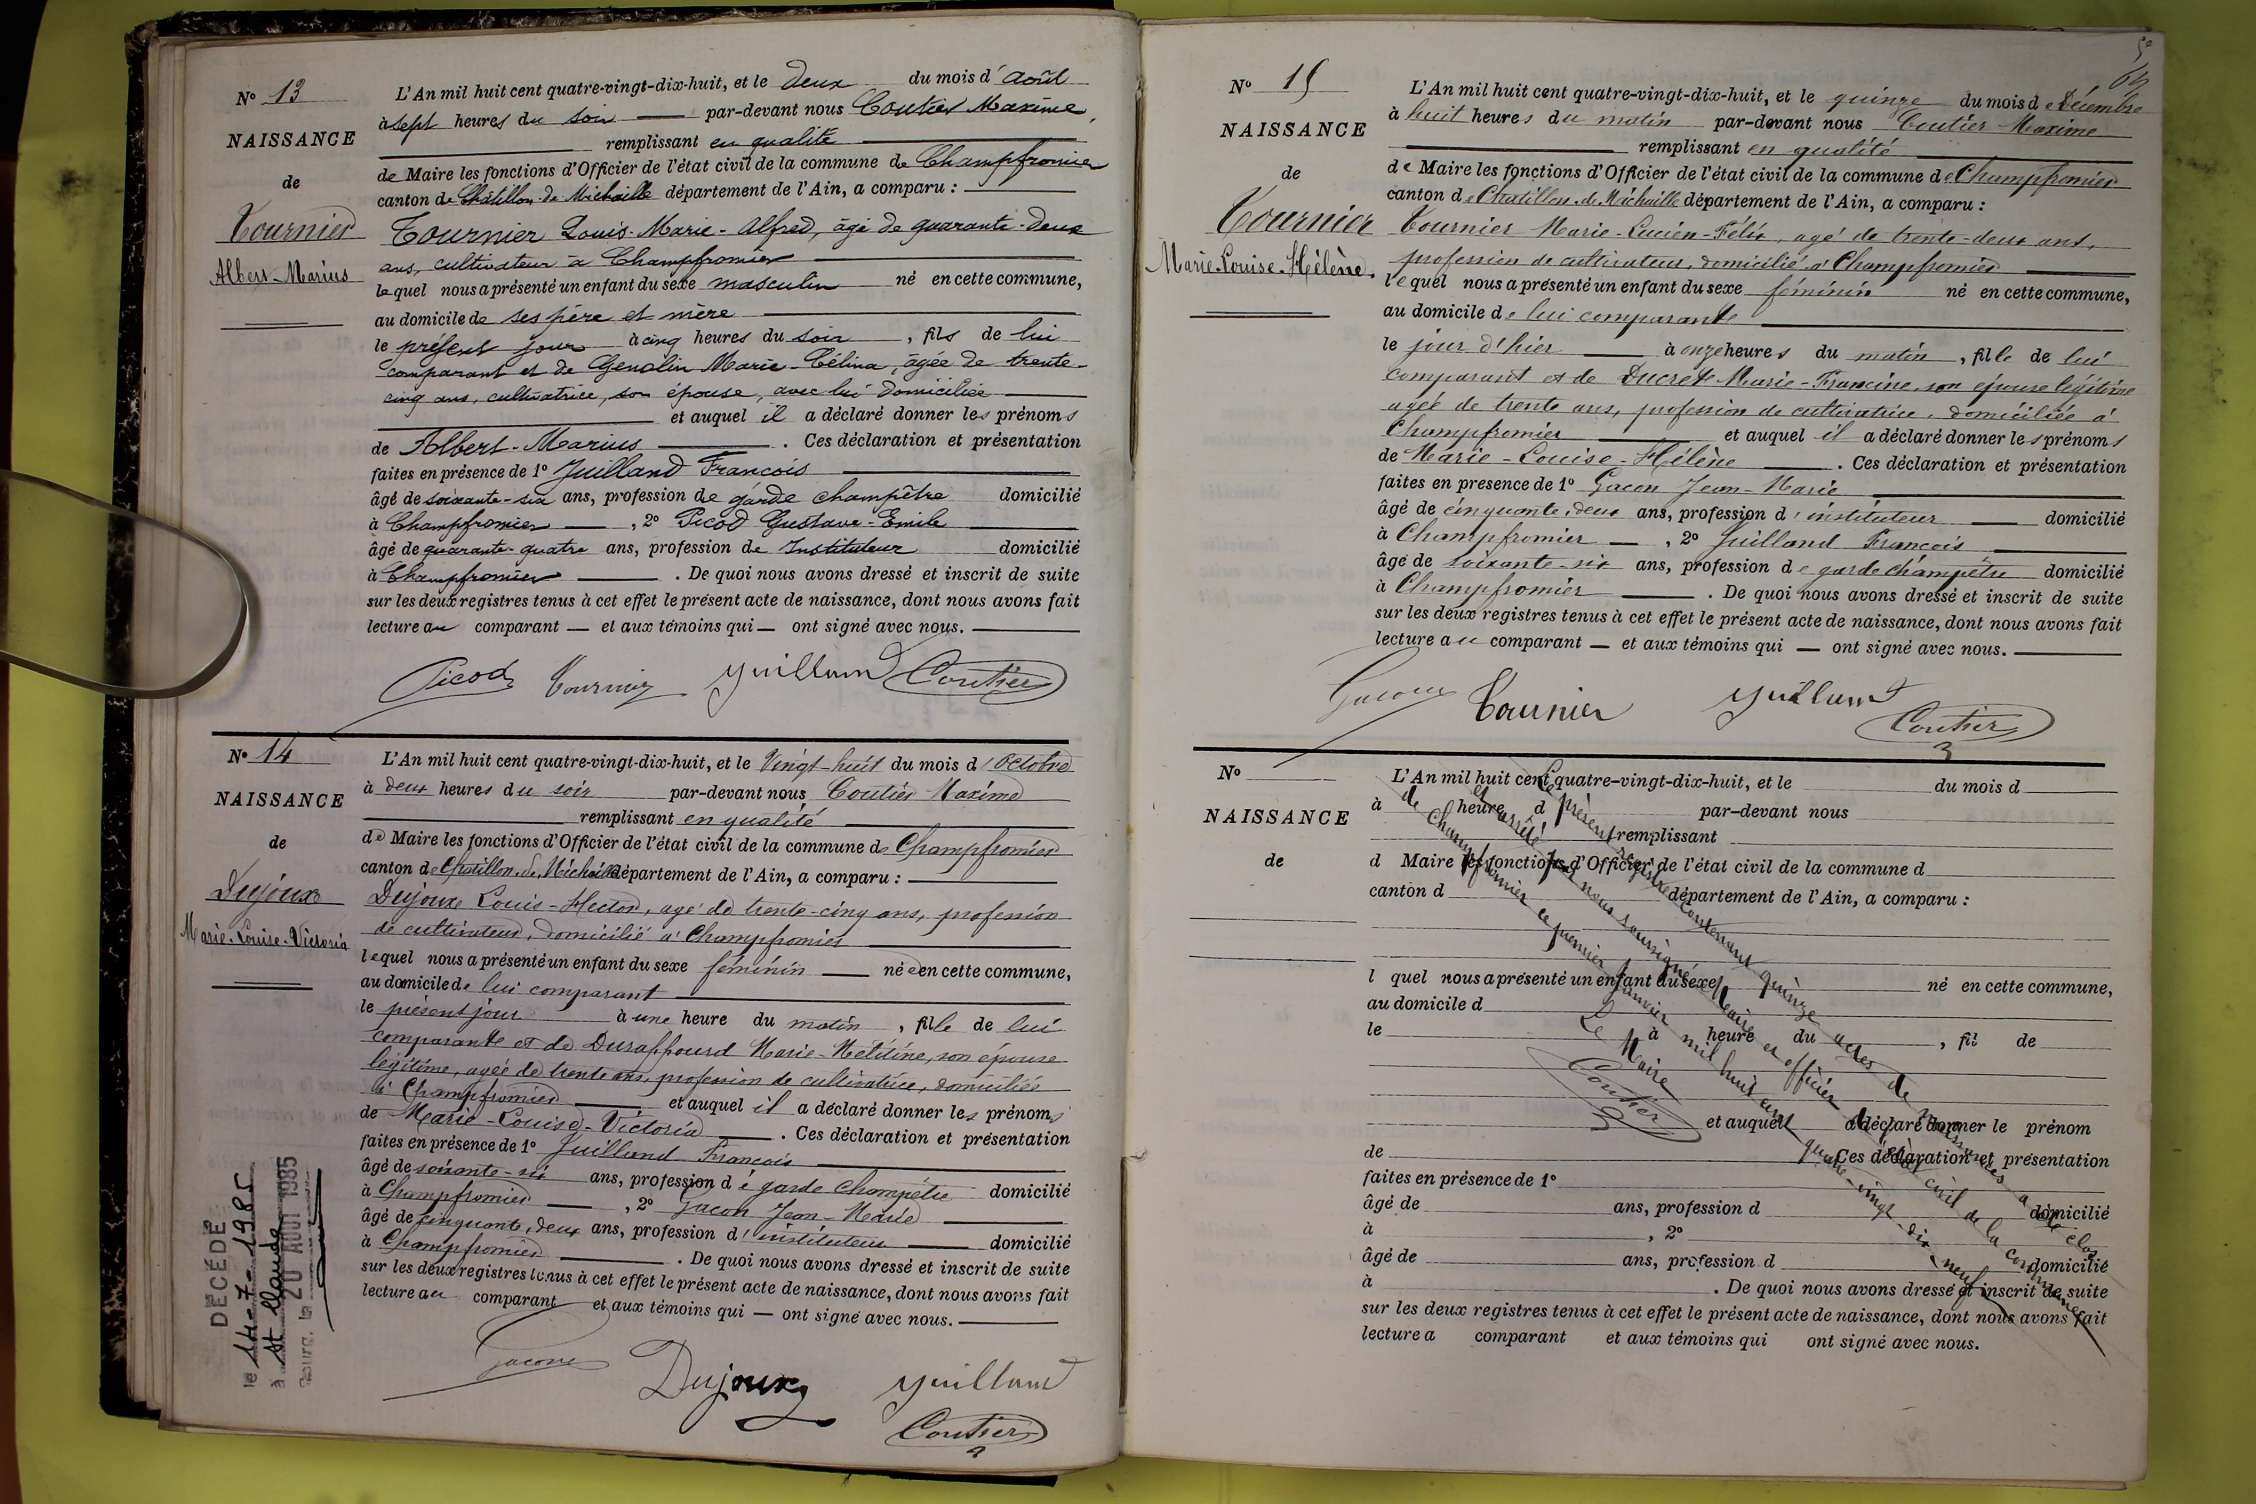 N° 13
NAISSANCE
de
Tournier
Albert-Marius
L'An mil huit cent quatre-vingt-dix-huit, et le deux du mois d'août
à sept heures du soir par-devant nous Coutier Maxime,
remplissant en qualité
de Maire les fonctions d'Officier de l'état civil de la commune de Champfromier
canton de Châtillon de Michaille département de l'Ain, a comparu :
Tournier Louis-Marie-Alfred, âgé de quarante-deux
ans, cultivateur à Champfromier
lequel nous a présenté un enfant du sexe masculin né en cette commune,
au domicile de ses père et mère
le présent jour à cinq heures du soir, fils de lui
comparant et de Genolin Marie-Célina, âgée de trente-
cinq ans, cultivatrice, son épouse, avec lui domiciliée
et auquel il a déclaré donner les prénoms
de Albert-Marius. Ces déclaration et présentation
faites en présence de 1° Juilland François
âgé de soixante-six ans, profession de garde champêtre domicilié
à Champfromier, 2° Picod Gustave-Emile
âgé de quarante-quatre ans, profession de Instituteur domicilié
à Champfromier. De quoi nous avons dressé et inscrit de suite
sur les deux registres tenus à cet effet le présent acte de naissance, dont nous avons fait
lecture au comparant — et aux témoins qui — ont signé avec nous.
Picod Tournier Juilland Coutier
N° 14
NAISSANCE
de
Dujoux
Marie-Louise-Victoria
L'An mil huit cent quatre-vingt-dix-huit, et le Vingt-huit du mois d'Octobre
à deux heures du soir par-devant nous Coutier Maxime
remplissant en qualité
de Maire les fonctions d'Officier de l'état civil de la commune de Champfromier
canton de Chatillon-de-Michaille département de l'Ain, a comparu :
Dujoux Louis-Hector, agé de trente-cinq ans, profession
de cultivateur, domicilié à Champfromier
lequel nous a présenté un enfant du sexe féminin — née en cette commune,
au domicile de lui comparant
le présent jour à une heure du matin, fille de lui
comparante et de Duraffourd Marie-Mélitine, son épouse
légitime, agée de trente ans, profession de cultivatrice, domiciliée
à Champfromier et auquel il a déclaré donner les prénoms
de Marie-Louise-Victoria. Ces déclaration et présentation
faites en présence de 1° Juilland François
âgé de soixante-six ans, profession de garde Champêtre domicilié
à Champfromier, 2° Gacon Jean-Marie
âgé de cinquante, deux ans, profession d'instituteur domicilié
à Champfromier. De quoi nous avons dressé et inscrit de suite
sur les deux registres tenus à cet effet le présent acte de naissance, dont nous avons fait
lecture au comparant et aux témoins qui — ont signé avec nous.
Gacon
Dujoux Juilland
Coutier
DÉCÉDÉ
le 14-7-1985
à St Claude
Bourg, le 20 AOUT 1985
N° 15
NAISSANCE
de
Tournier
Marie-Louise-Hélène.
L'An mil huit cent quatre-vingt-dix-huit, et le quinze du mois de Décembre
à huit heures du matin par-devant nous Coutier Maxime
remplissant en qualité
de Maire les fonctions d'Officier de l'état civil de la commune de Champfromier
canton de Chatillon-de-Michaille département de l'Ain, a comparu :
Tournier Marie-Lucien-Félix, agé de trente-deux ans,
profession de cultivateur, domicilié à Champfromier
lequel nous a présenté un enfant du sexe féminin né en cette commune,
au domicile de lui comparante
le jour d'hier à onze heures du matin, fille de lui
comparant et de Ducret Marie-Francine, son épouse légitime
agée de trente ans, profession de cultivatrice, domiciliée à
Champfromier et auquel il a déclaré donner les prénoms
de Marie-Louise-Hélène. Ces déclaration et présentation
faites en présence de 1° Gacon Jean-Marie
âgé de cinquante, deux ans, profession d'instituteur domicilié
à Champfromier, 2° Juilland François
âgé de soixante-six ans, profession de garde champêtre domicilié
à Champfromier. De quoi nous avons dressé et inscrit de suite
sur les deux registres tenus à cet effet le présent acte de naissance, dont nous avons fait
lecture au comparant — et aux témoins qui — ont signé avec nous.
Gacon Tournier Juilland
Coutier
N°
NAISSANCE
de
L'An mil huit cent quatre-vingt-dix-huit, et le du mois d
à heure d par-devant nous
remplissant
d Maire les fonctions d'Officier de l'état civil de la commune d
canton d département de l'Ain, a comparu :
l quel nous a présenté un enfant du sexe né en cette commune,
au domicile d
le à heure du , fil de
et auquel a déclaré donner le prénom
de Ces déclaration et présentation
faites en présence de 1°
âgé de ans, profession d domicilié
à , 2°
âgé de ans, profession d domicilié
à . De quoi nous avons dressé et inscrit de suite
sur les deux registres tenus à cet effet le présent acte de naissance, dont nous avons fait
lecture a comparant et aux témoins qui ont signé avec nous.
Le présent registre contenant quinze actes de naissances a été clos
et arrêté par nous soussigné Maire et officier de l'état civil de la commune
de Champfromier ce premier janvier mil huit cent quatre-vingt-dix-neuf
Le Maire
Coutier